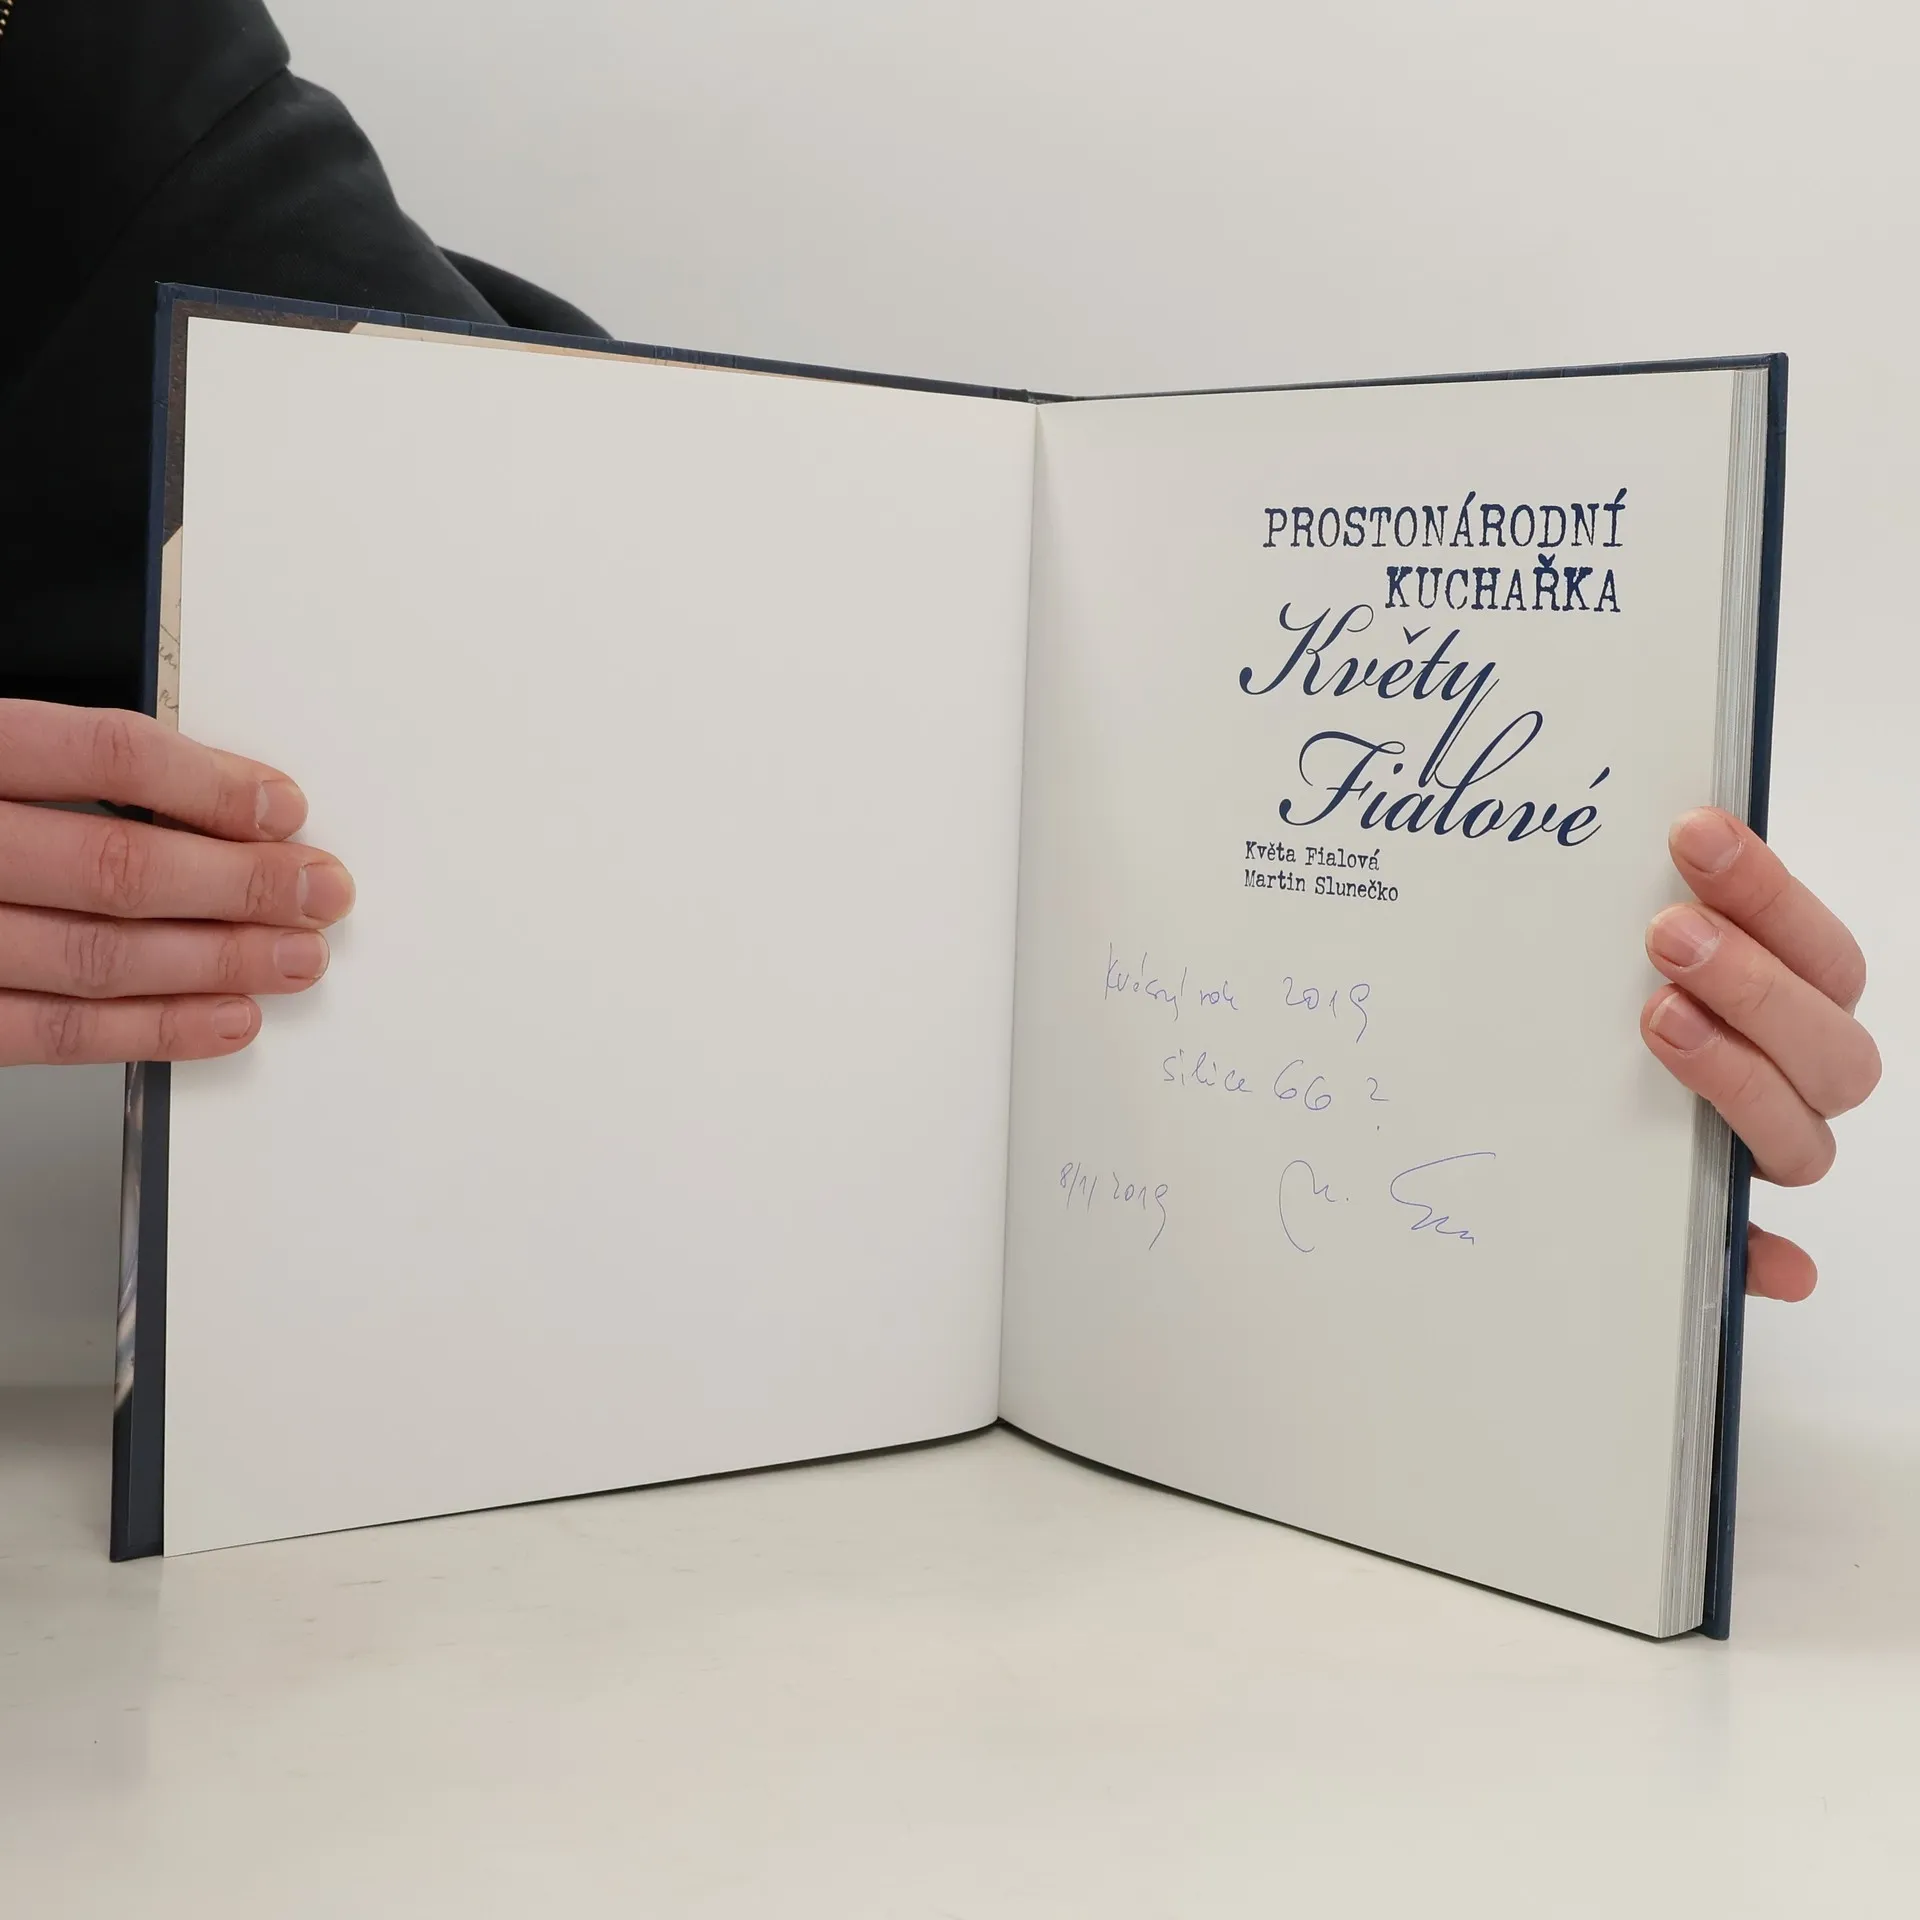 PROSTONÁRODNÍ
KUCHAŘKA
Květy
Fialové
Květa Fialová
Martin Slunečko
rok 2019
silice 66 ?
8/1/2019